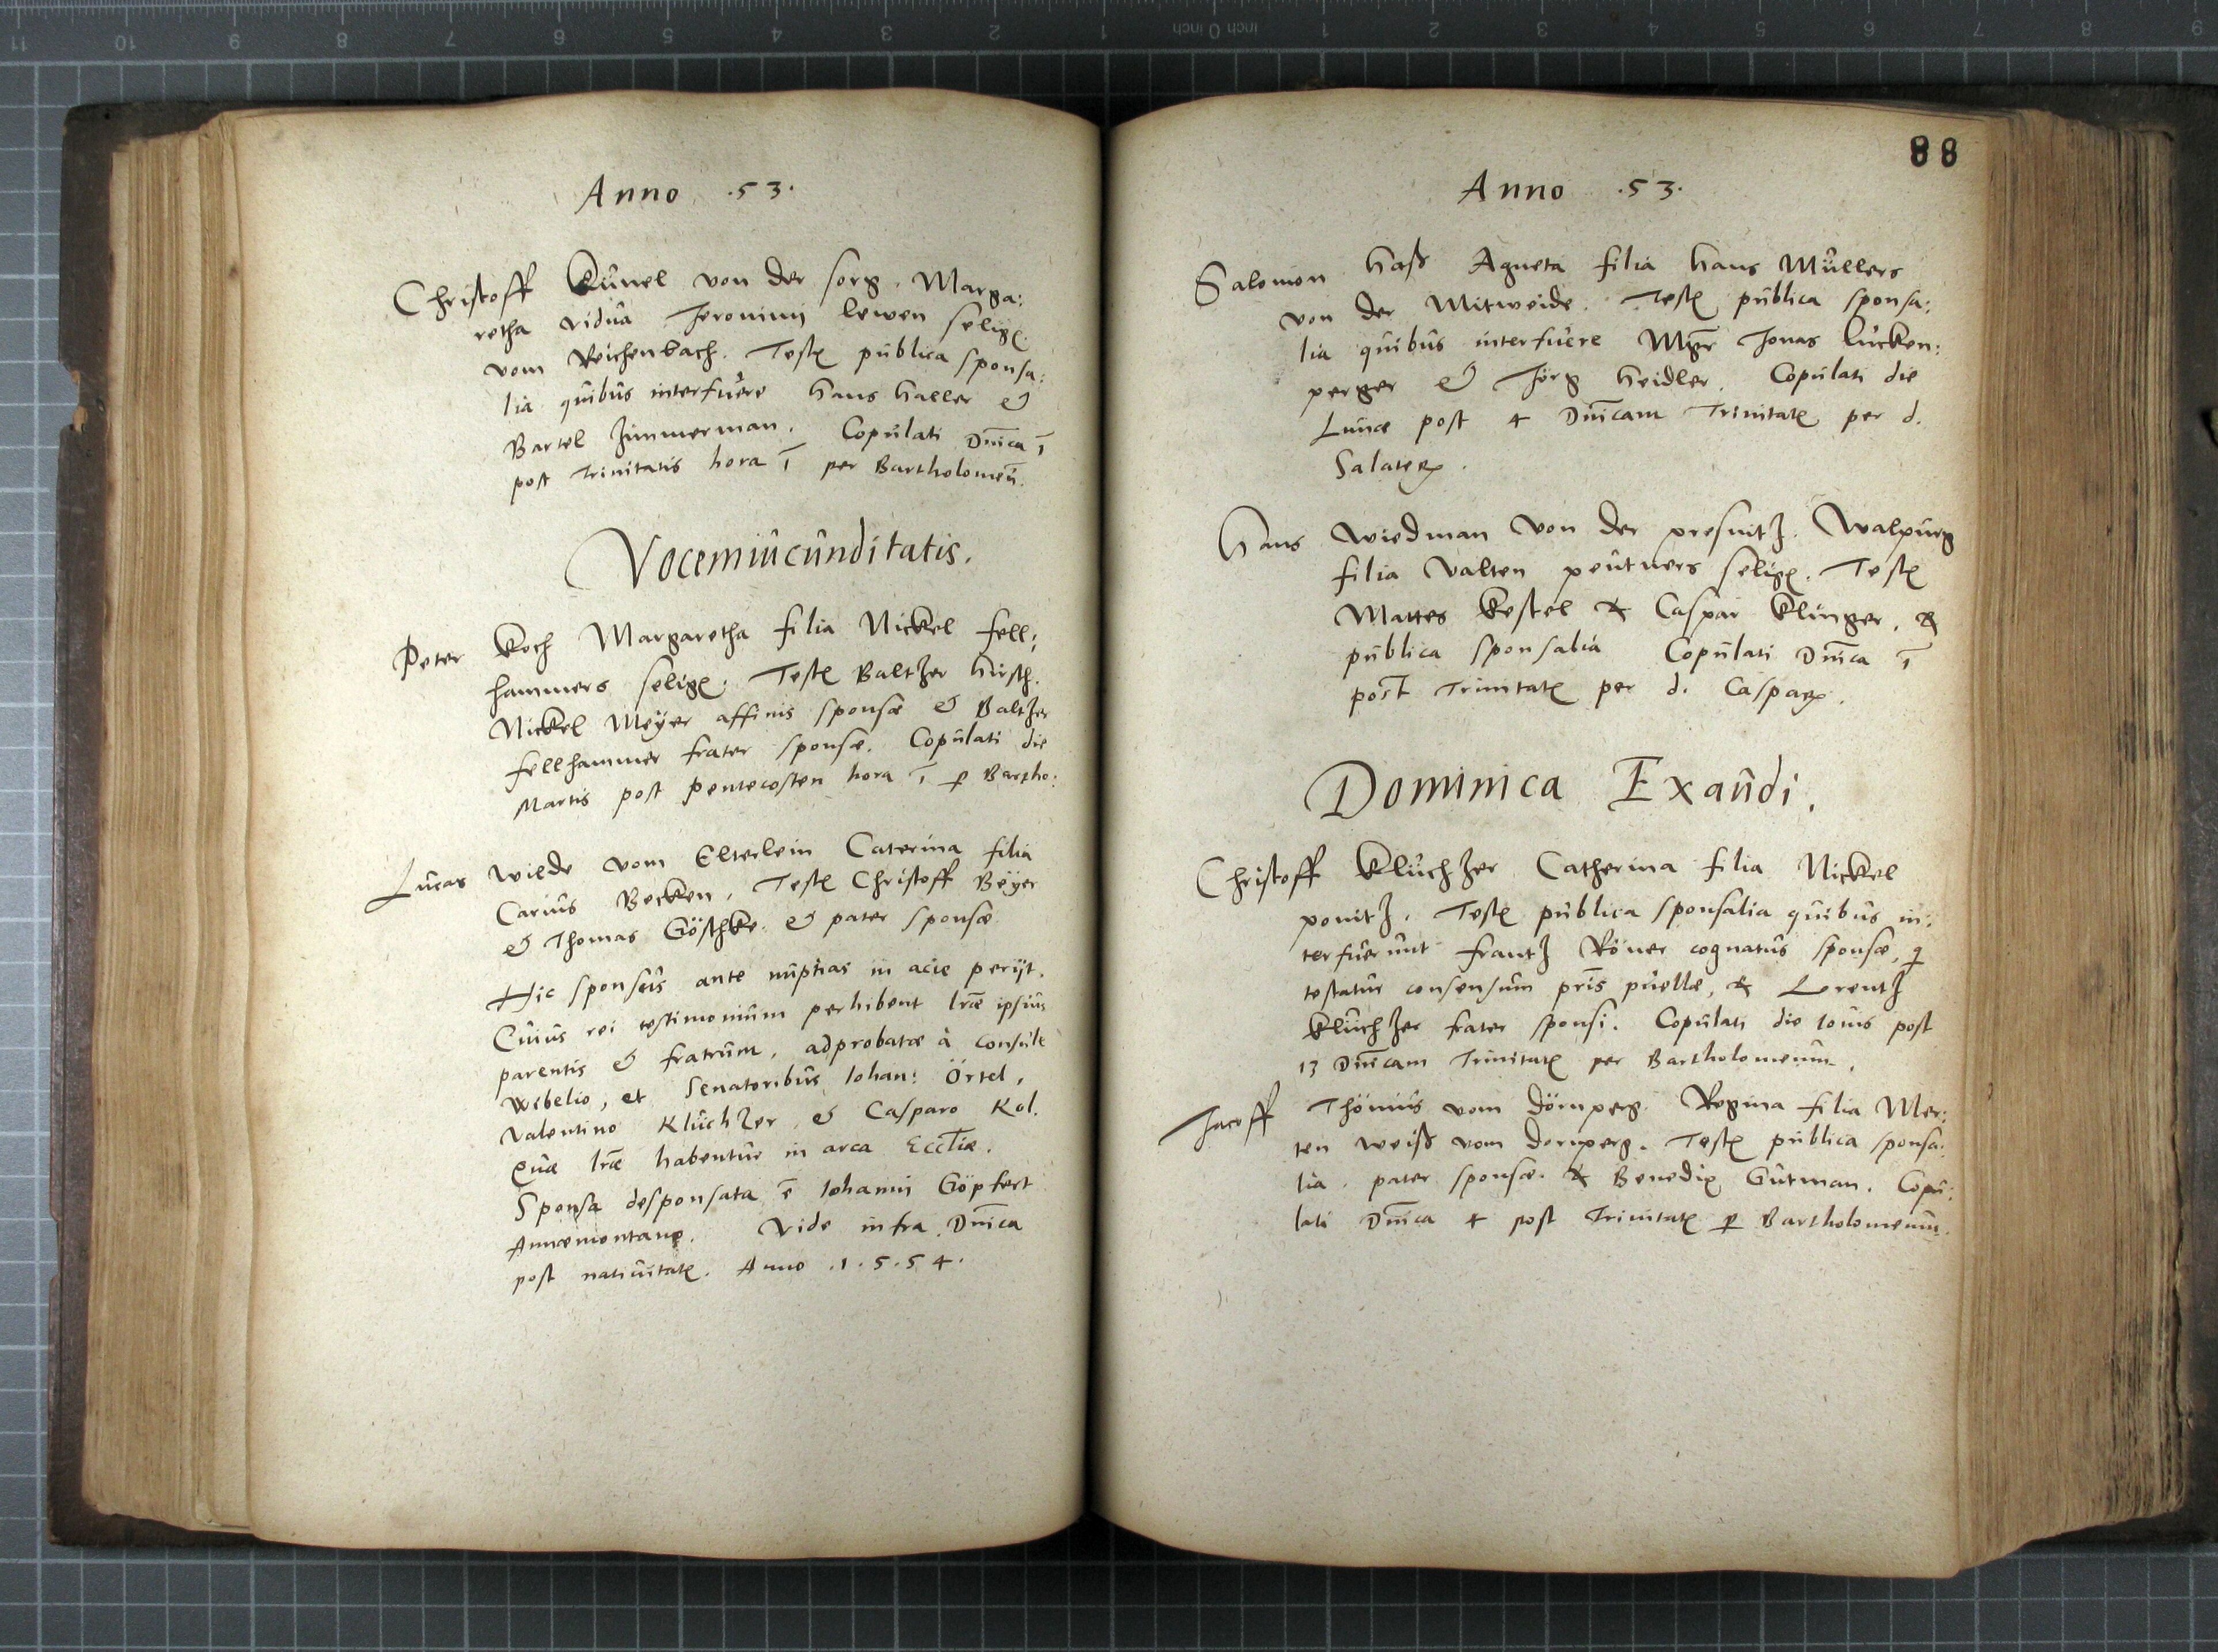 Anno .53.
Christoff Kunel von der sorg. Marga:
retha vidua Jeronimj lewen selig
vom Reichenbach. Test publica sponsa:
lia quibus interfuere Hans Haller &
Bartel Zimmerman. Copulati Dnica 1
post Trinitatis hora 1 per Bartholomeū.
Vocemiucunditatis.
Peter Koch Margaretha filia Nickel fell:
hammers selig. Test Baltzer Hirsch.
Nickel Meÿer affinis sponsæ & Baltzer
fellhammer frater sponsæ. Copulati die
Martis post Pentecosten hora 1 p Bartho:
Lucas Wilde vom Elterlein Caterina filia
Carius Becken. Test Christoff Beÿer
& Thomas Göschke. & pater sponsæ
Hic sponsus ante nuptias in acie perijt.
Cuius rei testimonium perhibent lræ ipsius
parentis & fratrum, adprobatæ à consule
Wibelio, et Senatoribus Iohan: Örtel,
Valentino Kluchzer, & Casparo Kol.
Quæ lræ habentur in arca Eccliæ.
Sponsa desponsata ē Iohannj Göpfert
Annæmontano. Vide infra Dnica
post nativitat. Anno .1.5.5 4.
88
Anno .53.
Salomon Haß Agneta filia Hans Mullers
von der Mitweide. Test publica sponsa:
lia quibus interfuere Mgr Jonas lucken:
perger & Jörg Heidler. Copulati die
Lunæ post 4 Dnicam Trinitat per d.
Salater.
Hans Wiedman von der presnitz. Walpurg
filia Valten peutners selig. Test
Mattes Kestel & Caspar Klinger, &
publica sponsalia Copulati Dnica 1
post Trinitat per d. Caspar.
Dominica Exaudi.
Christoff Kluchzer Catherina filia Nickel
ponitz. Test publica sponsalia quibus in:
terfuerunt frantz Röner cognatus sponsæ, q
testatur consensum pris puellæ, & Lorentz
Kluchzer frater sponsi. Copulati die Iouis post
13 Dnicam Trinitat per Bartholomeum.
Jacoff Thömus vom Dörnperg. Regina filia Mer:
ten weiß vom dornperg. Test publica sponsa:
lia. pater sponsæ. & Benedix Gutman. Copu:
lati Dnica 4 post Trinitat p Bartholomeum.